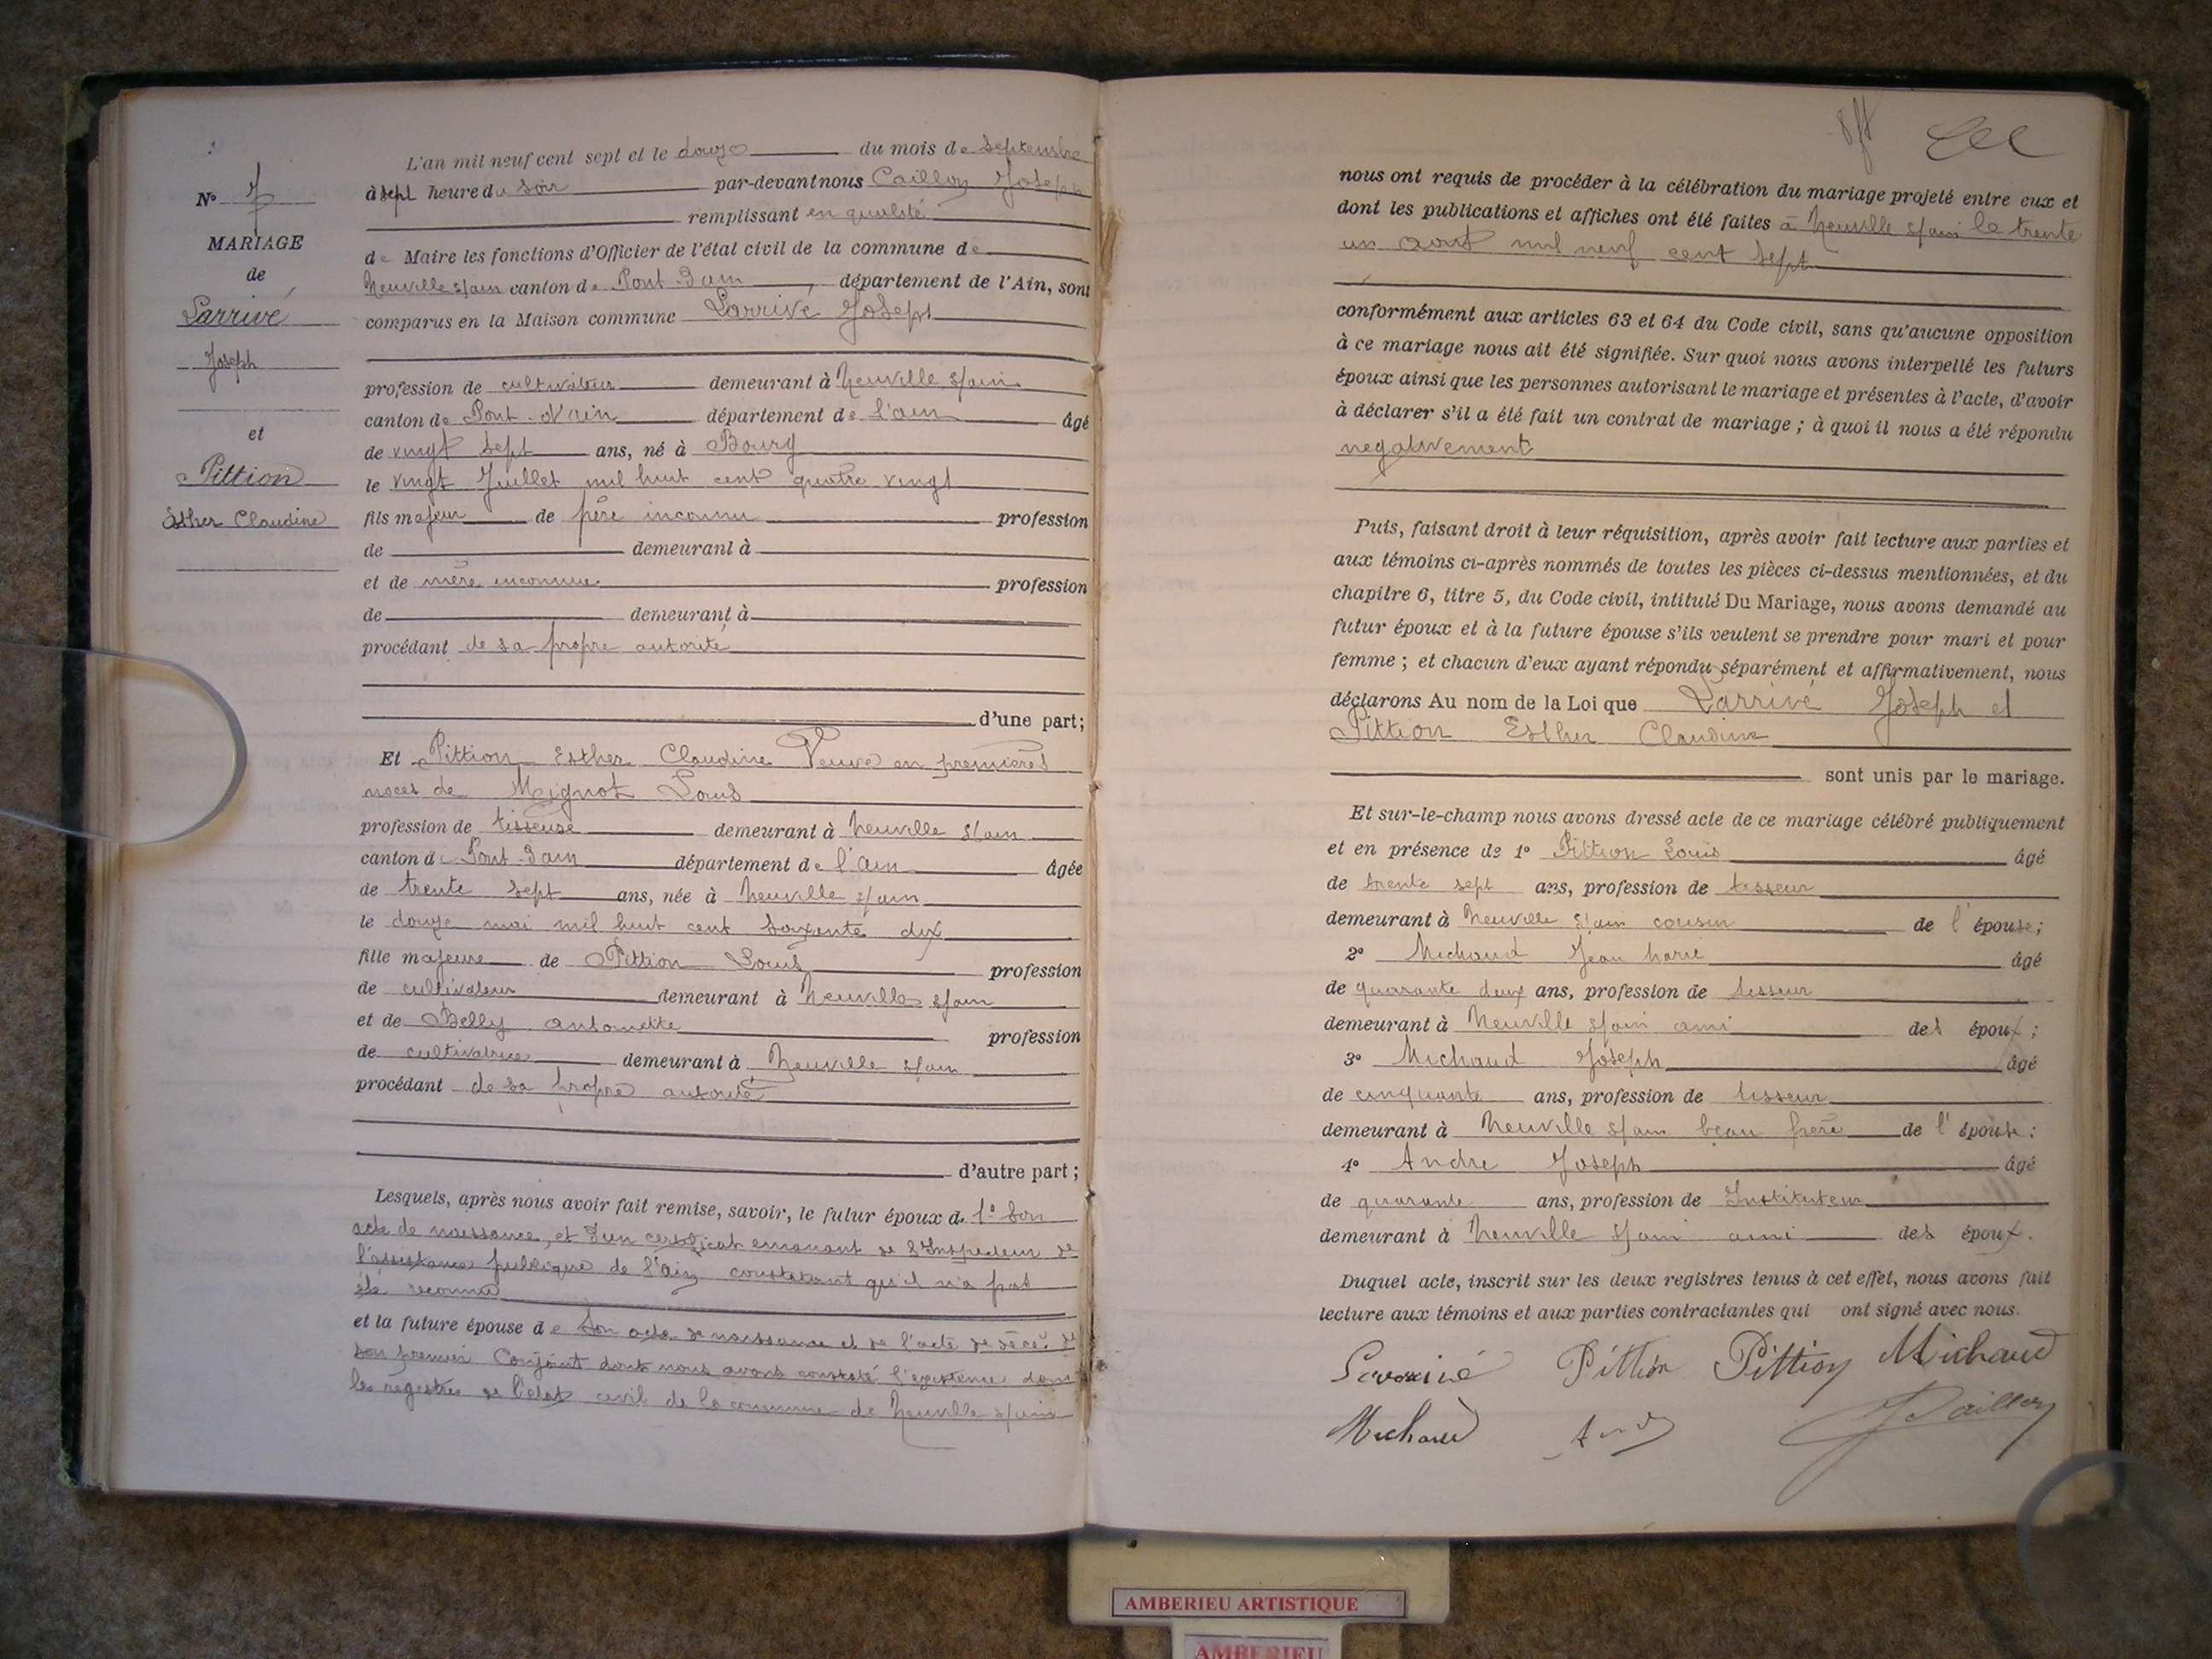 N° 7
MARIAGE
de
Larrivé
Joseph
et
Pittion
Esther Claudine
L'an mil neuf cent sept et le douze du mois de Septembre
à sept heure du soir par-devant nous Caillon Joseph
remplissant en qualité
de Maire les fonctions d'Officier de l'état civil de la commune de
Neuville s/ain canton de Pont-d'ain, département de l'Ain, sont
comparus en la Maison commune Larrivé Joseph
profession de cultivateur demeurant à Neuville s/ain
canton de Pont-d'ain département de l'ain âgé
de vingt sept ans, né à Bourg
le vingt Juillet mil huit cent quatre vingt
fils majeur de père inconnu profession
de demeurant à
et de mère inconnue profession
de demeurant à
procédant de sa propre autorité
d'une part;
Et Pittion Esther Claudine Veuve en premières
noces de Mignot Louis
profession de tisseuse demeurant à Neuville s/ain
canton de Pont-d'ain département de l'ain âgée
de trente sept ans, née à Neuville s/ain
le douze mai mil huit cent soixante dix
fille majeure de Pittion Louis profession
de cultivateur demeurant à Neuville s/ain
et de Belly antoinette profession
de cultivatrice demeurant à Neuville s/ain
procédant de sa propre autorité
d'autre part;
Lesquels, après nous avoir fait remise, savoir, le futur époux de 1° son
acte de naissance, et d'un certificat emanant de l'Inspecteur de
l'assistance publique de l'Ain constatant qu'il n'a pas
été reconnu
et la future épouse de son acte de naissance et de l'acte de décès de
son premier Conjoint dont nous avons constaté l'existence dans
les registres de l'état civil de la commune de Neuville s/ain
nous ont requis de procéder à la célébration du mariage projeté entre eux et
dont les publications et affiches ont été faites à Neuville s/ain le trente
un aout mil neuf cent sept
conformément aux articles 63 et 64 du Code civil, sans qu'aucune opposition
à ce mariage nous ait été signifiée. Sur quoi nous avons interpellé les futurs
époux ainsi que les personnes autorisant le mariage et présentes à l'acte, d'avoir
à déclarer s'il a été fait un contrat de mariage; à quoi il nous a été répondu
negativement
Puis, faisant droit à leur réquisition, après avoir fait lecture aux parties et
aux témoins ci-après nommés de toutes les pièces ci-dessus mentionnées, et du
chapitre 6, titre 5, du Code civil, intitulé Du Mariage, nous avons demandé au
futur époux et à la future épouse s'ils veulent se prendre pour mari et pour
femme; et chacun d'eux ayant répondu séparément et affirmativement, nous
déclarons Au nom de la Loi que Larrivé Joseph et
Pittion Esther Claudine
sont unis par le mariage.
Et sur-le-champ nous avons dressé acte de ce mariage célébré publiquement
et en présence de 1° Pittion Louis âgé
de trente sept ans, profession de tisseur
demeurant à Neuville s/ain cousin de l'épouse;
2° Michaud Jean Marie âgé
de quarante deux ans, profession de tisseur
demeurant à Neuville s/ain ami des époux;
3° Michaud Joseph âgé
de cinquante ans, profession de tisseur
demeurant à Neuville s/ain beau frère de l'épouse;
4° Andre Joseph âgé
de quarante ans, profession de Instituteur
demeurant à Neuville s/ain ami des époux.
Duquel acte, inscrit sur les deux registres tenus à cet effet, nous avons fait
lecture aux témoins et aux parties contractantes qui ont signé avec nous.
Pittion Pittion Michaud
Michaud JCaillon
AMBERIEU ARTISTIQUE
AMBERIEU